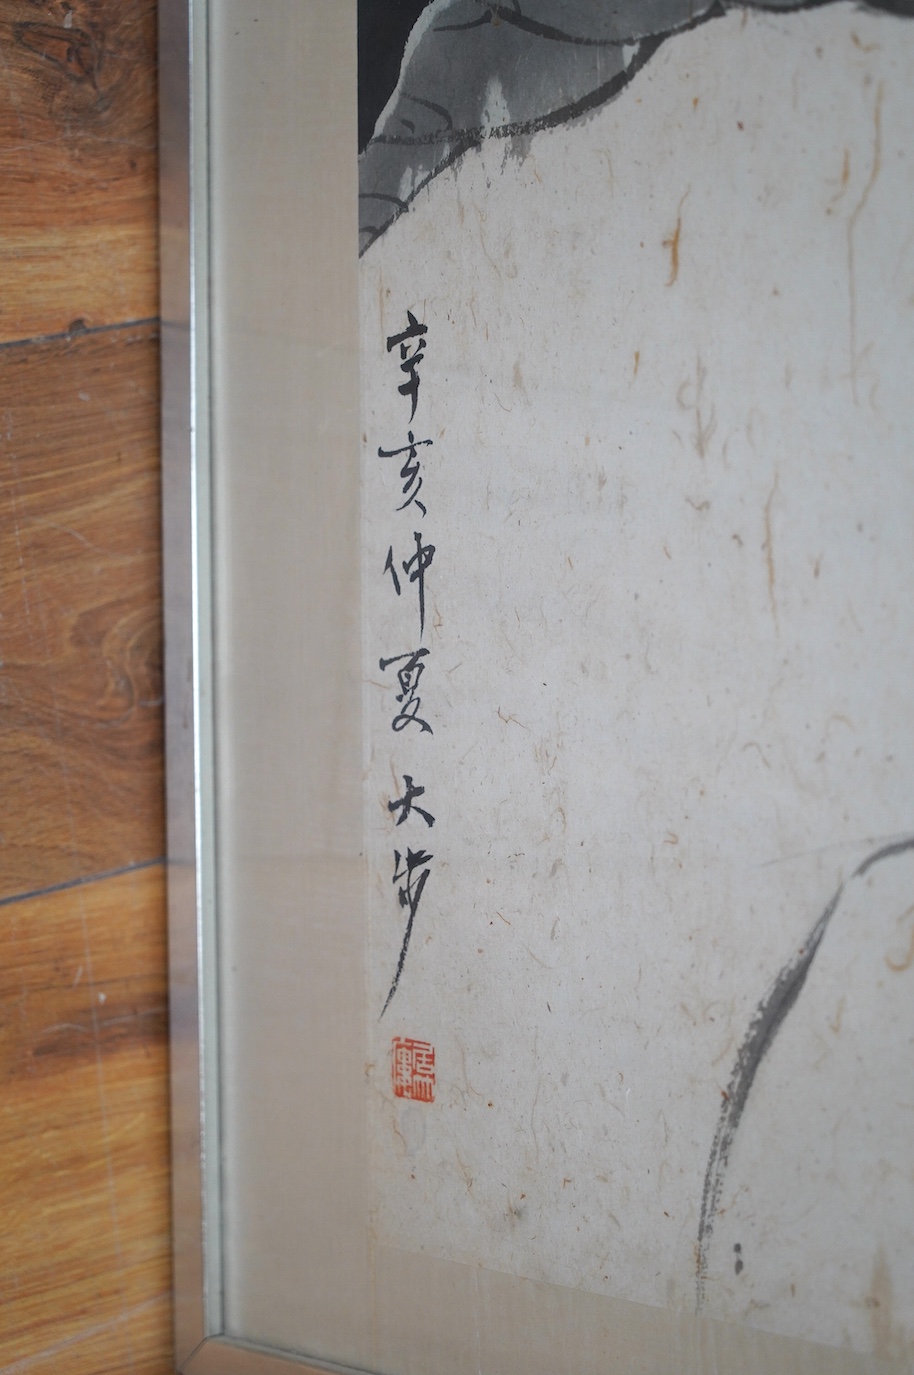 辛亥仲夏 大步